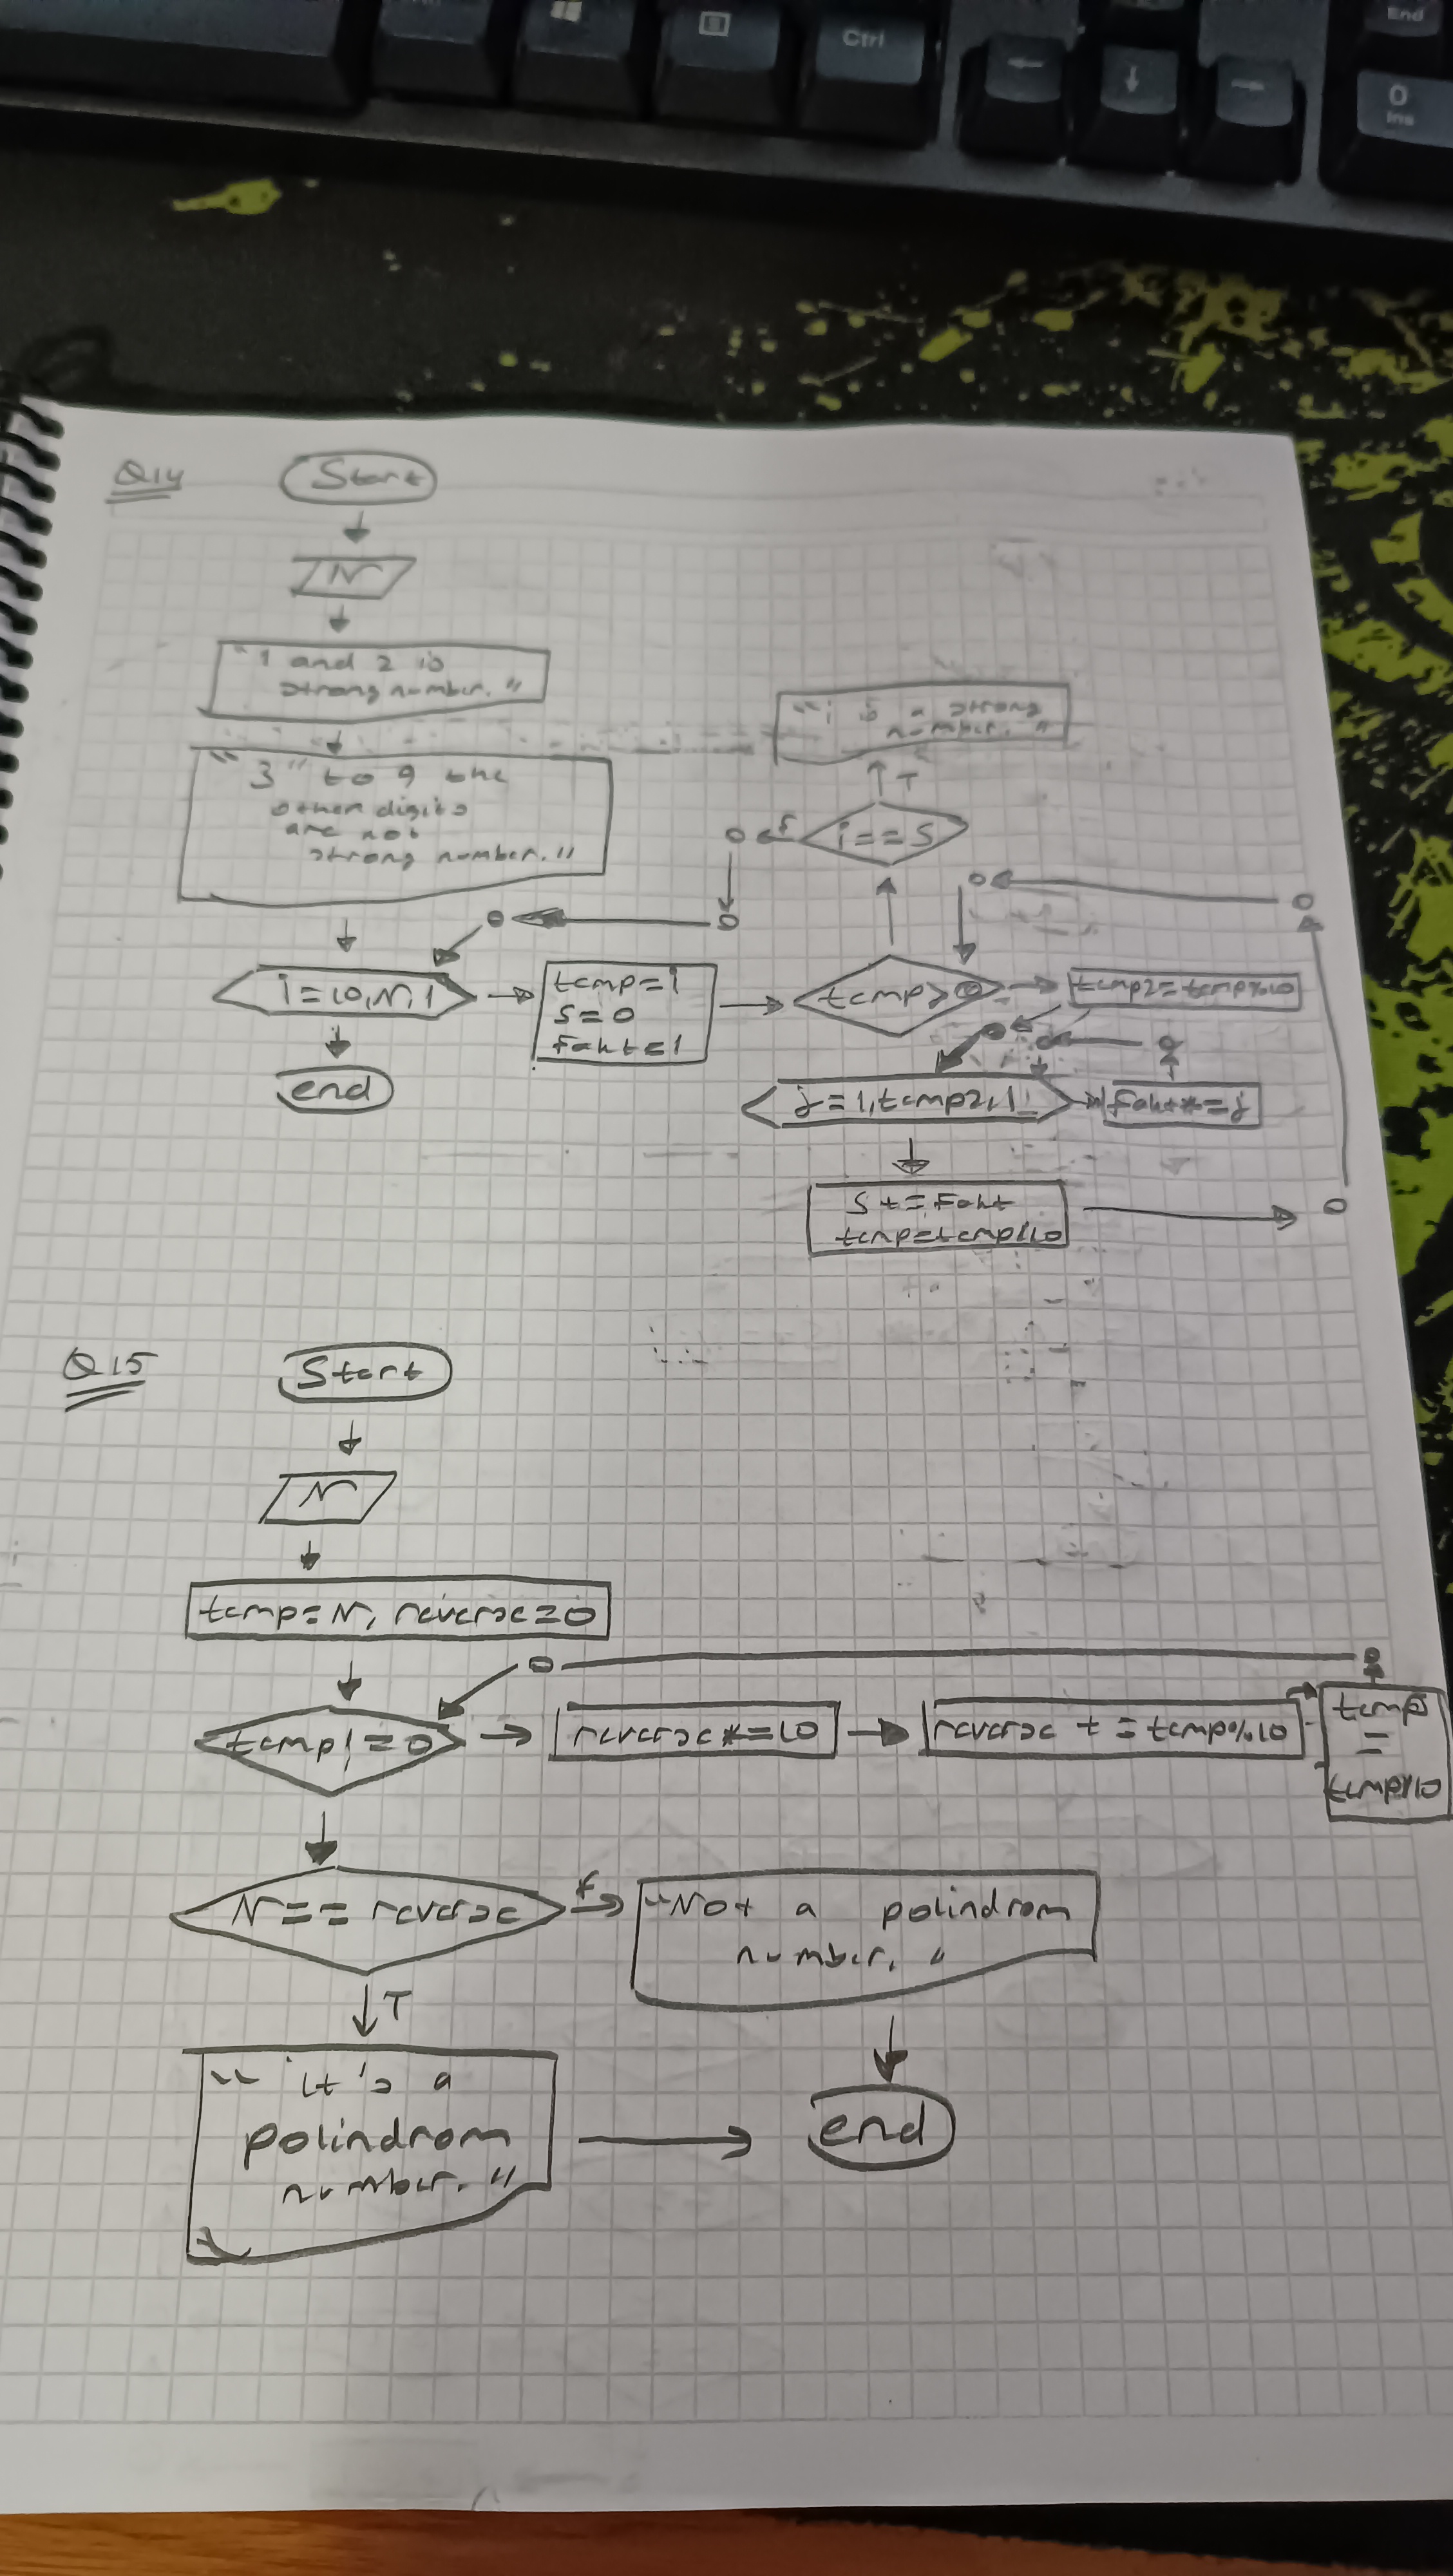 Ctrl
End
0
Ins
Q14
Start
N
"1 and 2 is
strong number."
"3" to 9 the
other digits
are not
strong number."
"i is a strong
number."
T
i==S
F
i=10,N,1
temp=i
S=0
Fakt=1
temp>0
temp2=temp%10
j=1,temp2,1
Fakt*=j
S+=Fakt
temp=temp/10
end
Q15
Start
N
temp=N, reverse=0
temp!=0
reverse*=10
reverse+=temp%10
temp
=
temp/10
N==reverse
F
"Not a polindrom
number."
T
"it's a
polindrom
number."
end